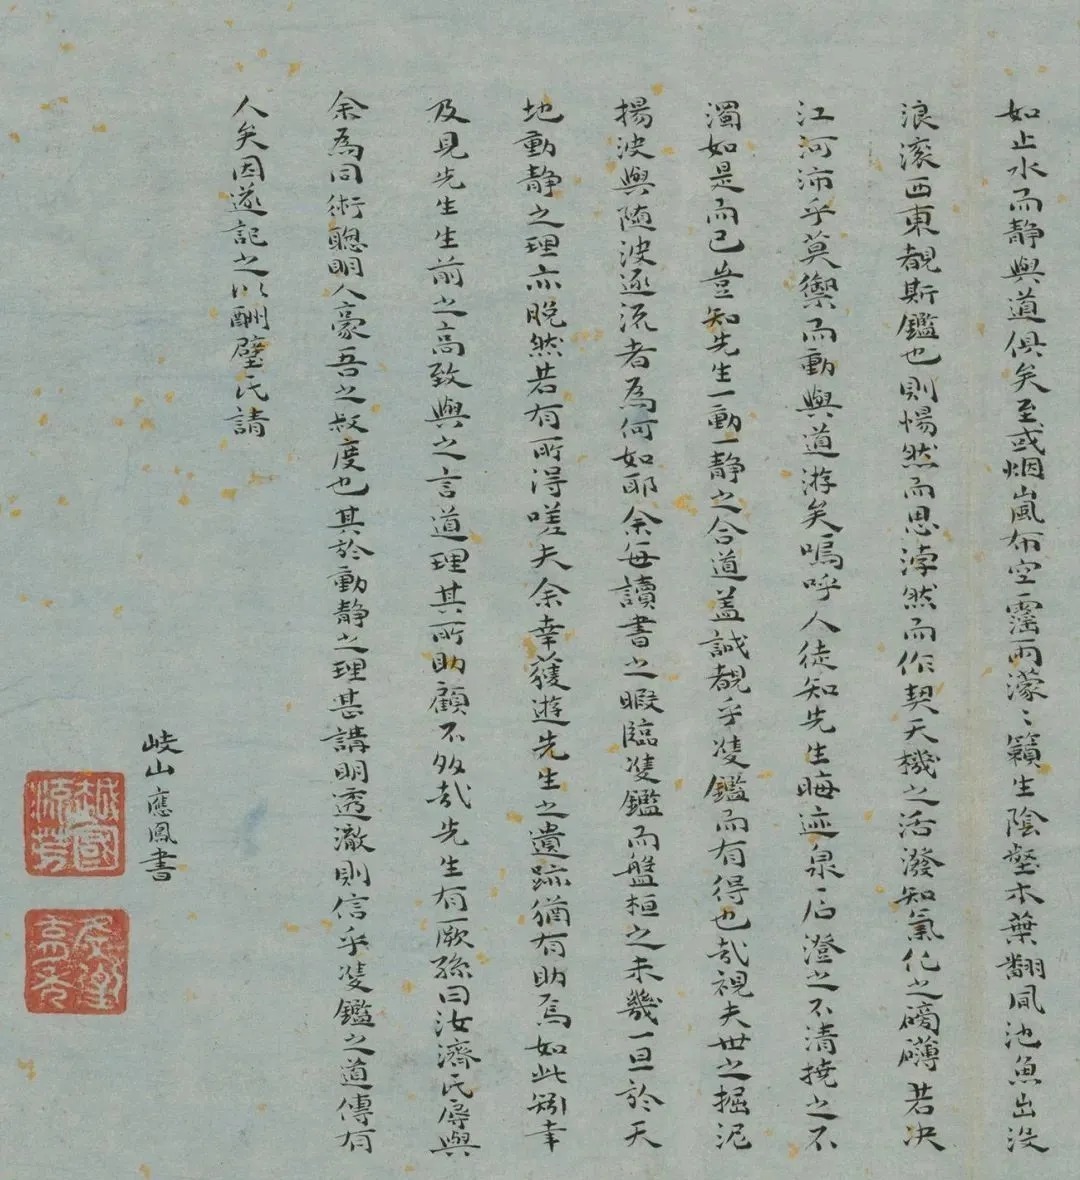 如止水而静與道俱矣至或烟嵐布空霪雨濛〻籟生陰壑木葉翻風池魚出没
浪滚西東覩斯鑑也則惕然而思浡然而作契天機之活潑知氣化之磅礴若决
江河沛乎莫禦而動與道游矣嗚呼人徒知先生晦迹泉石澄之不清撓之不
濁如是而已豈知先生一動一静之合道盖誠覩乎䨇鑑而有得也哉視夫世之掘泥
揚波與随波逐流者為何如耶余每讀書之暇臨䨇鑑而盤桓之未幾一旦於天
地動静之理亦晩然若有所得嗟夫余幸獲遊先生之遺跡猶有助焉如此矧幸
及見先生生前之高致與之言道理其所助顧不多哉先生有厥孫曰汝濟氏辱與
余為同術聰明人豪吾之叔度也其於動静之理甚講明透澈則信乎䨇鑑之道傳有
人矣因遂記之以酬璧氏請
岐山應鳳書
越國流芳